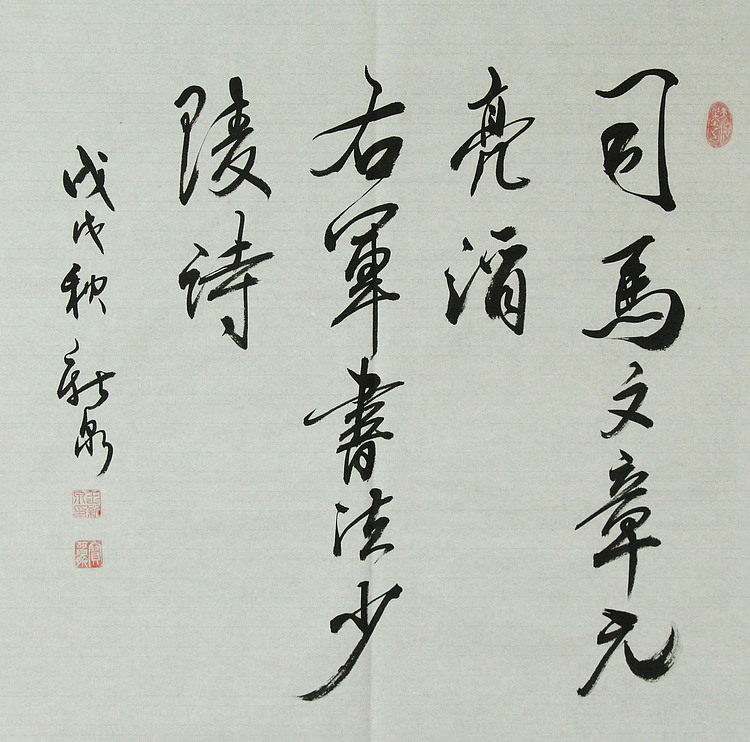 司馬文章元
亮酒
右軍書法少
陵詩
戊戌秋新泉